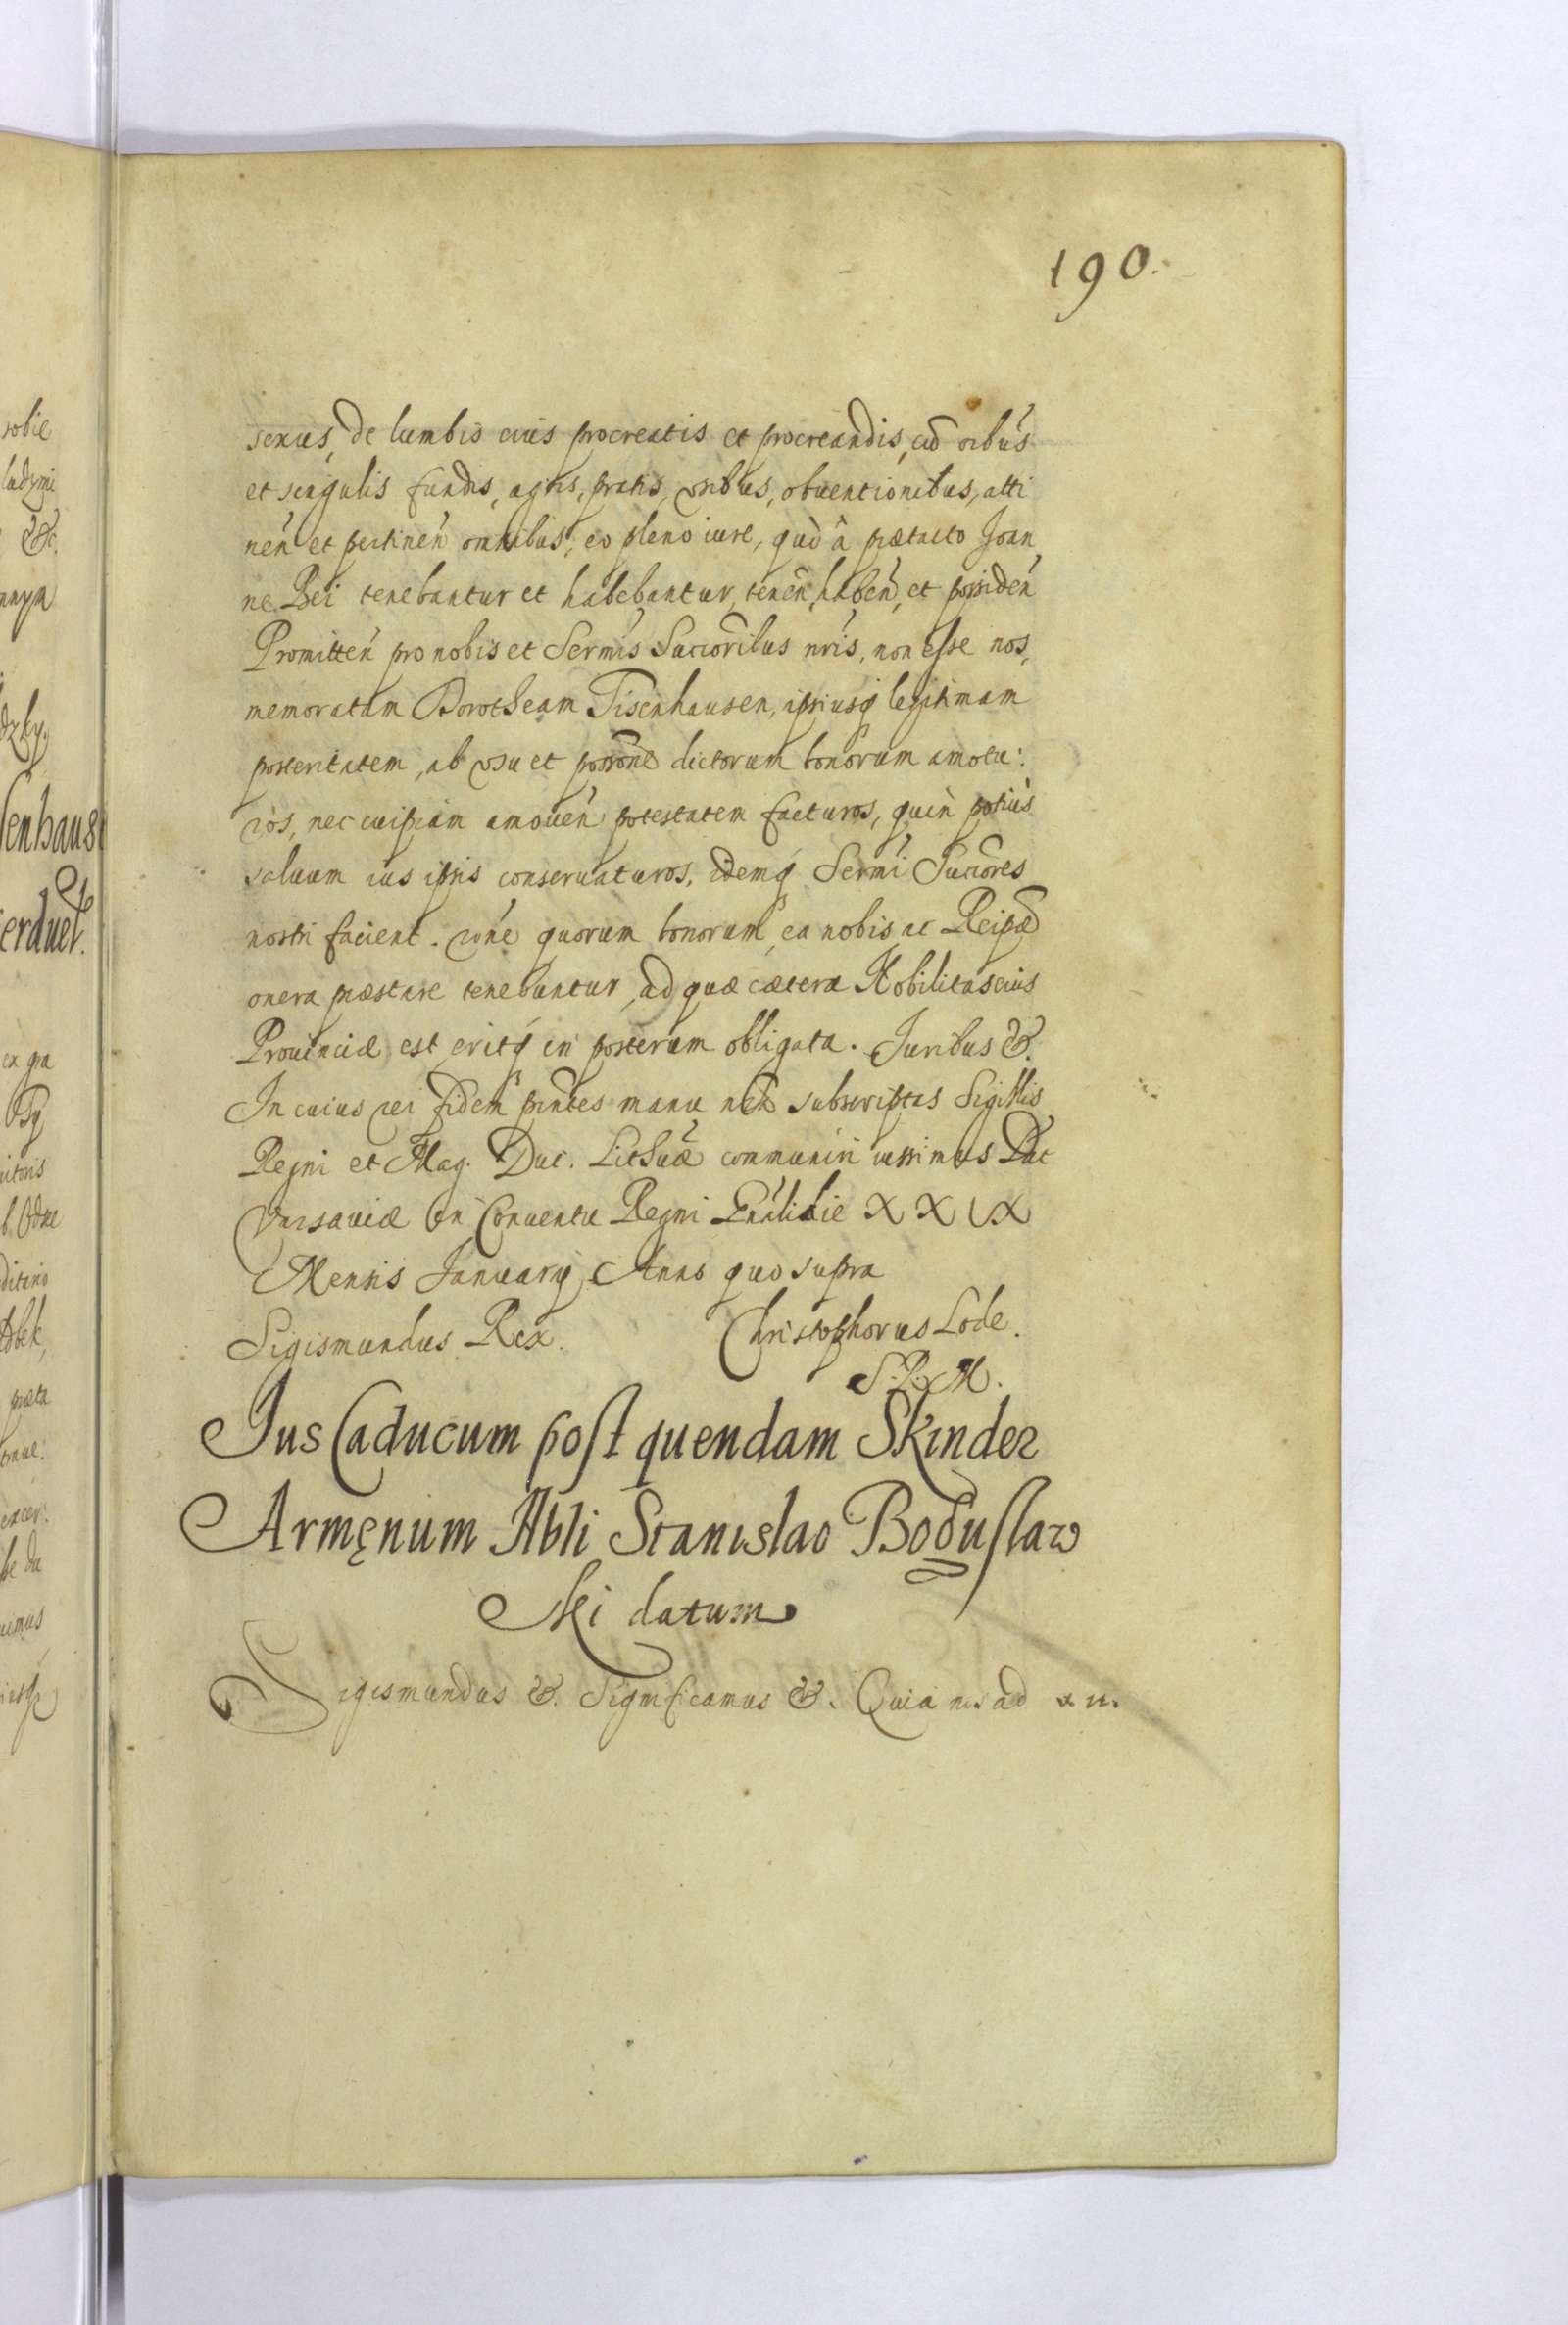 190.
sexus, de lumbis eius procreatis et procreandis, cũ oibus
et singulis fundis, agris, pratis, vsibus, obuentionibus, atti
neñ et pertineñ omnibus, eo pleno iure, quò à prætacto Joan
ne Bei tenebantur et habebantur, teneñ, habeñ, et possideñ
Promitteñ pro nobis et Sermis Succoribus nris, non esse nos,
memoratam Dorotheam Tisenhausen, ipsiusq legitimam
posteritatem, ab vsu et possone dictorum bonorum amotu:
ros, nec cuipiam amoueñ potestatem facturos, quin potius
saluum ius ipsis conseruaturos, idemq Sermi Succores
nostri facient. rone quorum bonorum, ea nobis ac Reipæ
onera præstare tenebuntur, ad quæ cætera Nobilitas eius
Prouinciæ est eritq in posterum obligata. Juribus &.
In cuius rei fidem pntes manu nra subscriptas Sigillis
Regni et Mag. Duc. Lithuæ communiri iussimus Dat
Varsauiæ in Conuentu Regni Gnali die XXIX
Mensis Januarij Anno quo supra
Sigismundus Rex. Christophorus Lode.
S. R. M.
Jus Caducum post quendam Skinder
Armęnum Nbli Stanislao Boduslaw
ski datum
Sigismundus &. Significamus &. Quia nos ad
sobie
ludzmi
&c.
senhaus
ex gra
uitoris
ditario
præta
uimus